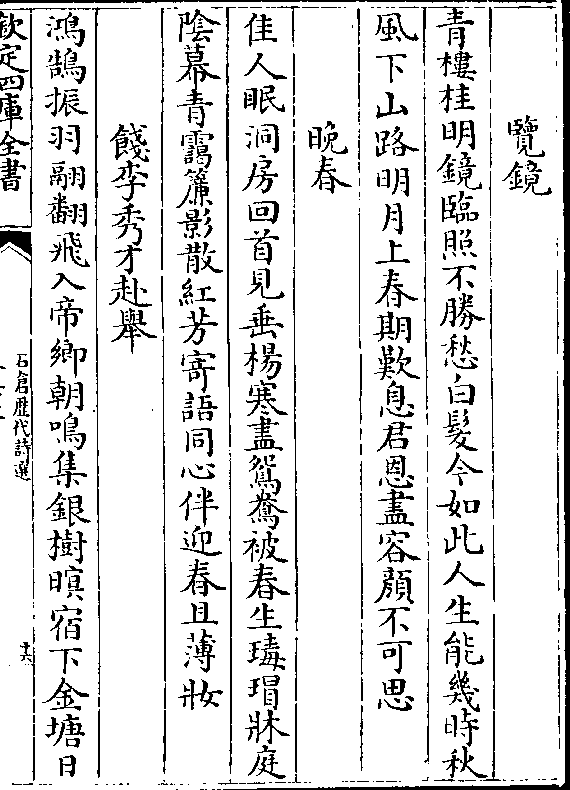 覽鏡
青樓桂明鏡臨照不勝愁白髮今如此人生能幾時秋
風下山路明月上春期歎息君恩盡容顔不可思
晚春
佳人眠洞房回首見垂楊寒盡鴛鴦被春生瑇瑁牀庭
陰幕青靄簾影散紅芳寄語同心伴迎春且薄妝
餞李秀才赴舉
鴻鵠振羽翮翻飛入帝鄉朝鳴集銀樹暝宿下金塘日
欽定四庫全書
石倉歷代詩選